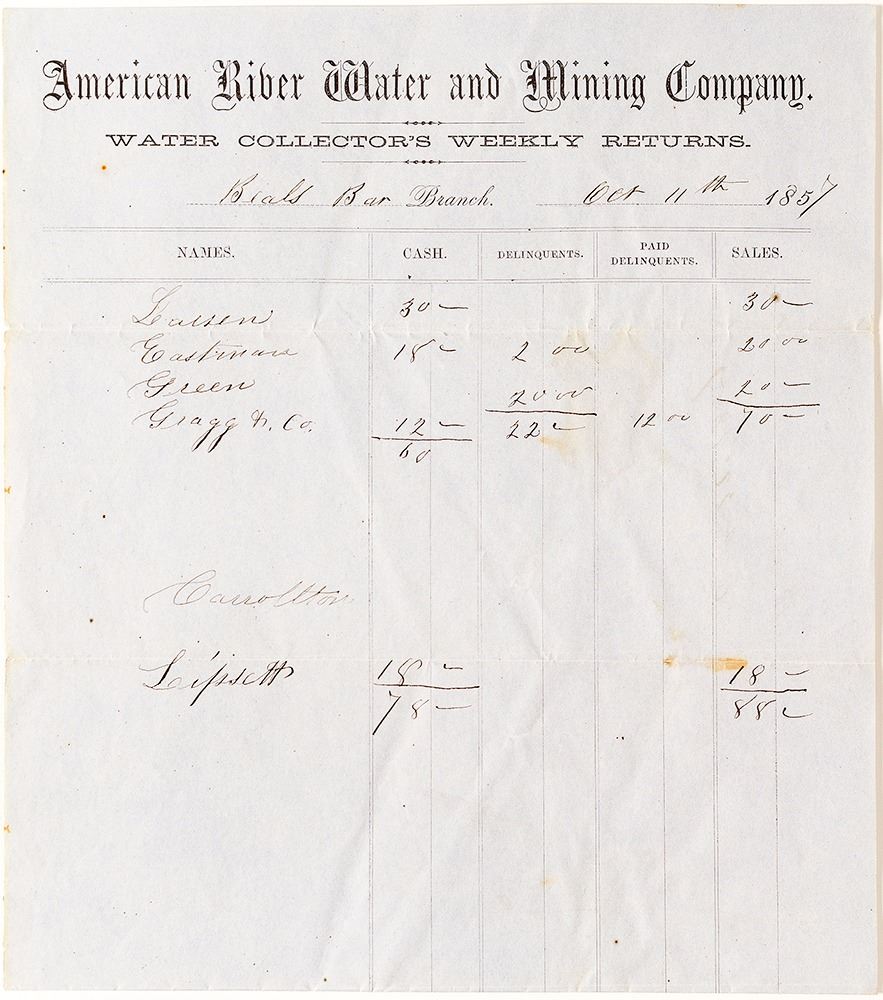 American River Water and Mining Company.
WATER COLLECTOR'S WEEKLY RETURNS.
Beals Bar Branch. Oct 11th 1857
NAMES. CASH. DELINQUENTS. PAID DELINQUENTS. SALES.
Larsen 30 – 30 –
Eastman 18 – 2 00 20 00
Green 20 00 20 –
Gragg & Co. 12 – 22 – 12 00 70 –
60
Carrollton
Lipsett 18 – 18 –
78 – 88 –